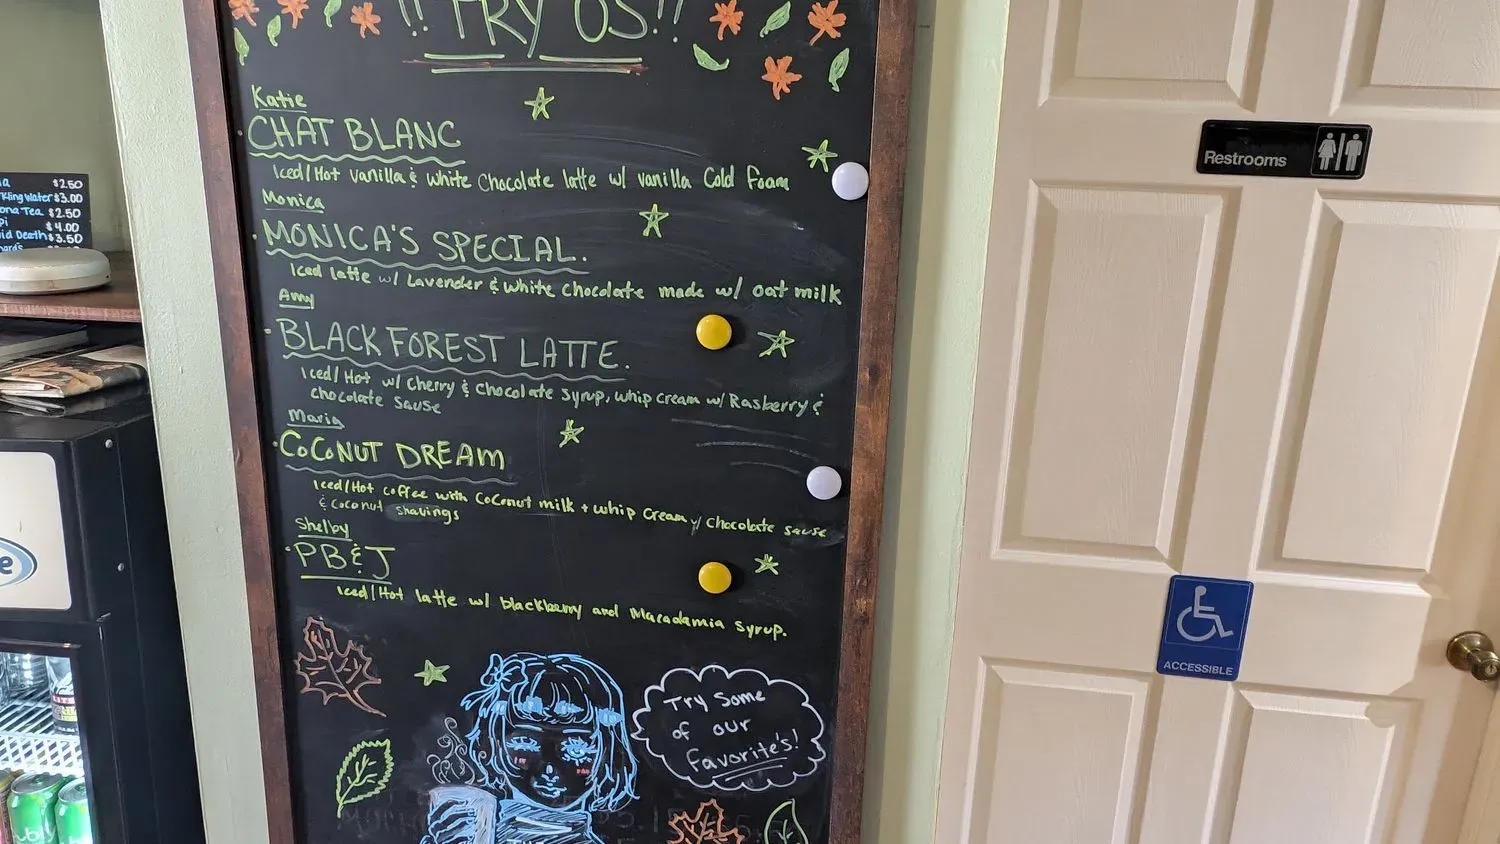 !! TRY US!!
Katie
CHAT BLANC
Iced/Hot vanilla & white chocolate latte w/ vanilla Cold foam
Monica
MONICA'S SPECIAL.
Iced latte w/ Lavender & white chocolate made w/ oat milk
Amy
BLACK FOREST LATTE.
Iced/Hot w/ Cherry & Chocolate syrup, whip cream w/ Rasberry &
chocolate sause
Maria
COCONUT DREAM
Iced/Hot coffee with Coconut milk + whip cream w/ chocolate sause
& coconut shavings
Shelby
PB&J
Iced/Hot latte w/ blackberry and Macadamia syrup.
Try some
of our
favorite's!
$2.50
Water $3.00
Tea $2.50
$4.00
Death $3.50
Restrooms
ACCESSIBLE